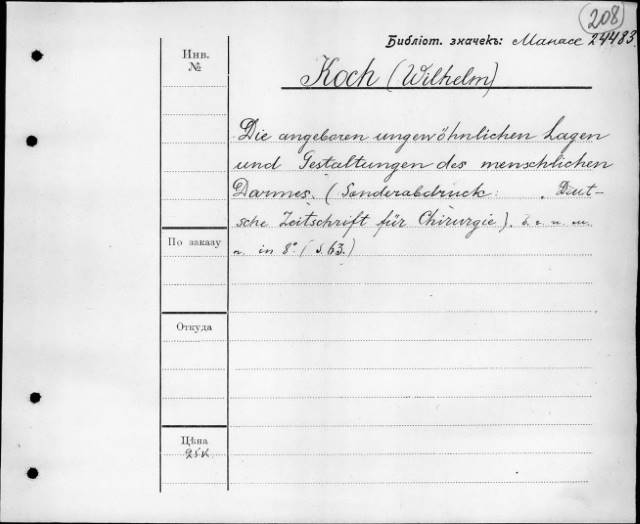 208
Библіот. значекъ: Манасе 24483
Инв.
№
Koch (Wilhelm)
Die angeboren ungewöhnlichen Lagen
und Gestaltungen des menschlichen
Darmes. (Sonderabdruck: „Deut-
sche Zeitschrift für Chirurgie). б. г. и. м.
и. in 8° (S. 63.)
По заказу
Откуда
Цѣна
25 к